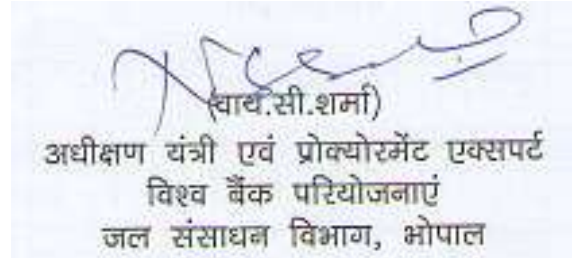 (वाय.सी.शर्मा)
अधीक्षण यंत्री एवं प्रोक्योरमेंट एक्सपर्ट
विश्व बैंक परियोजनाएं
जल संसाधन विभाग, भोपाल